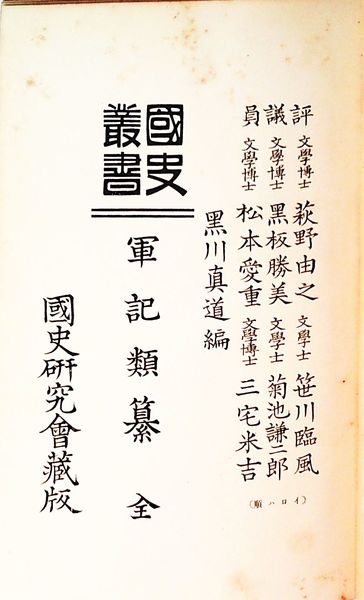 評 文學博士 萩野由之 文學士 笹川臨風
議 文學博士 黑板勝美 文學士 菊池謙二郎
員 文學博士 松本愛重 文學博士 三宅米吉
(イロハ順)
黑川真道編
國史
叢書
軍記類纂 全
國史硏究會藏版